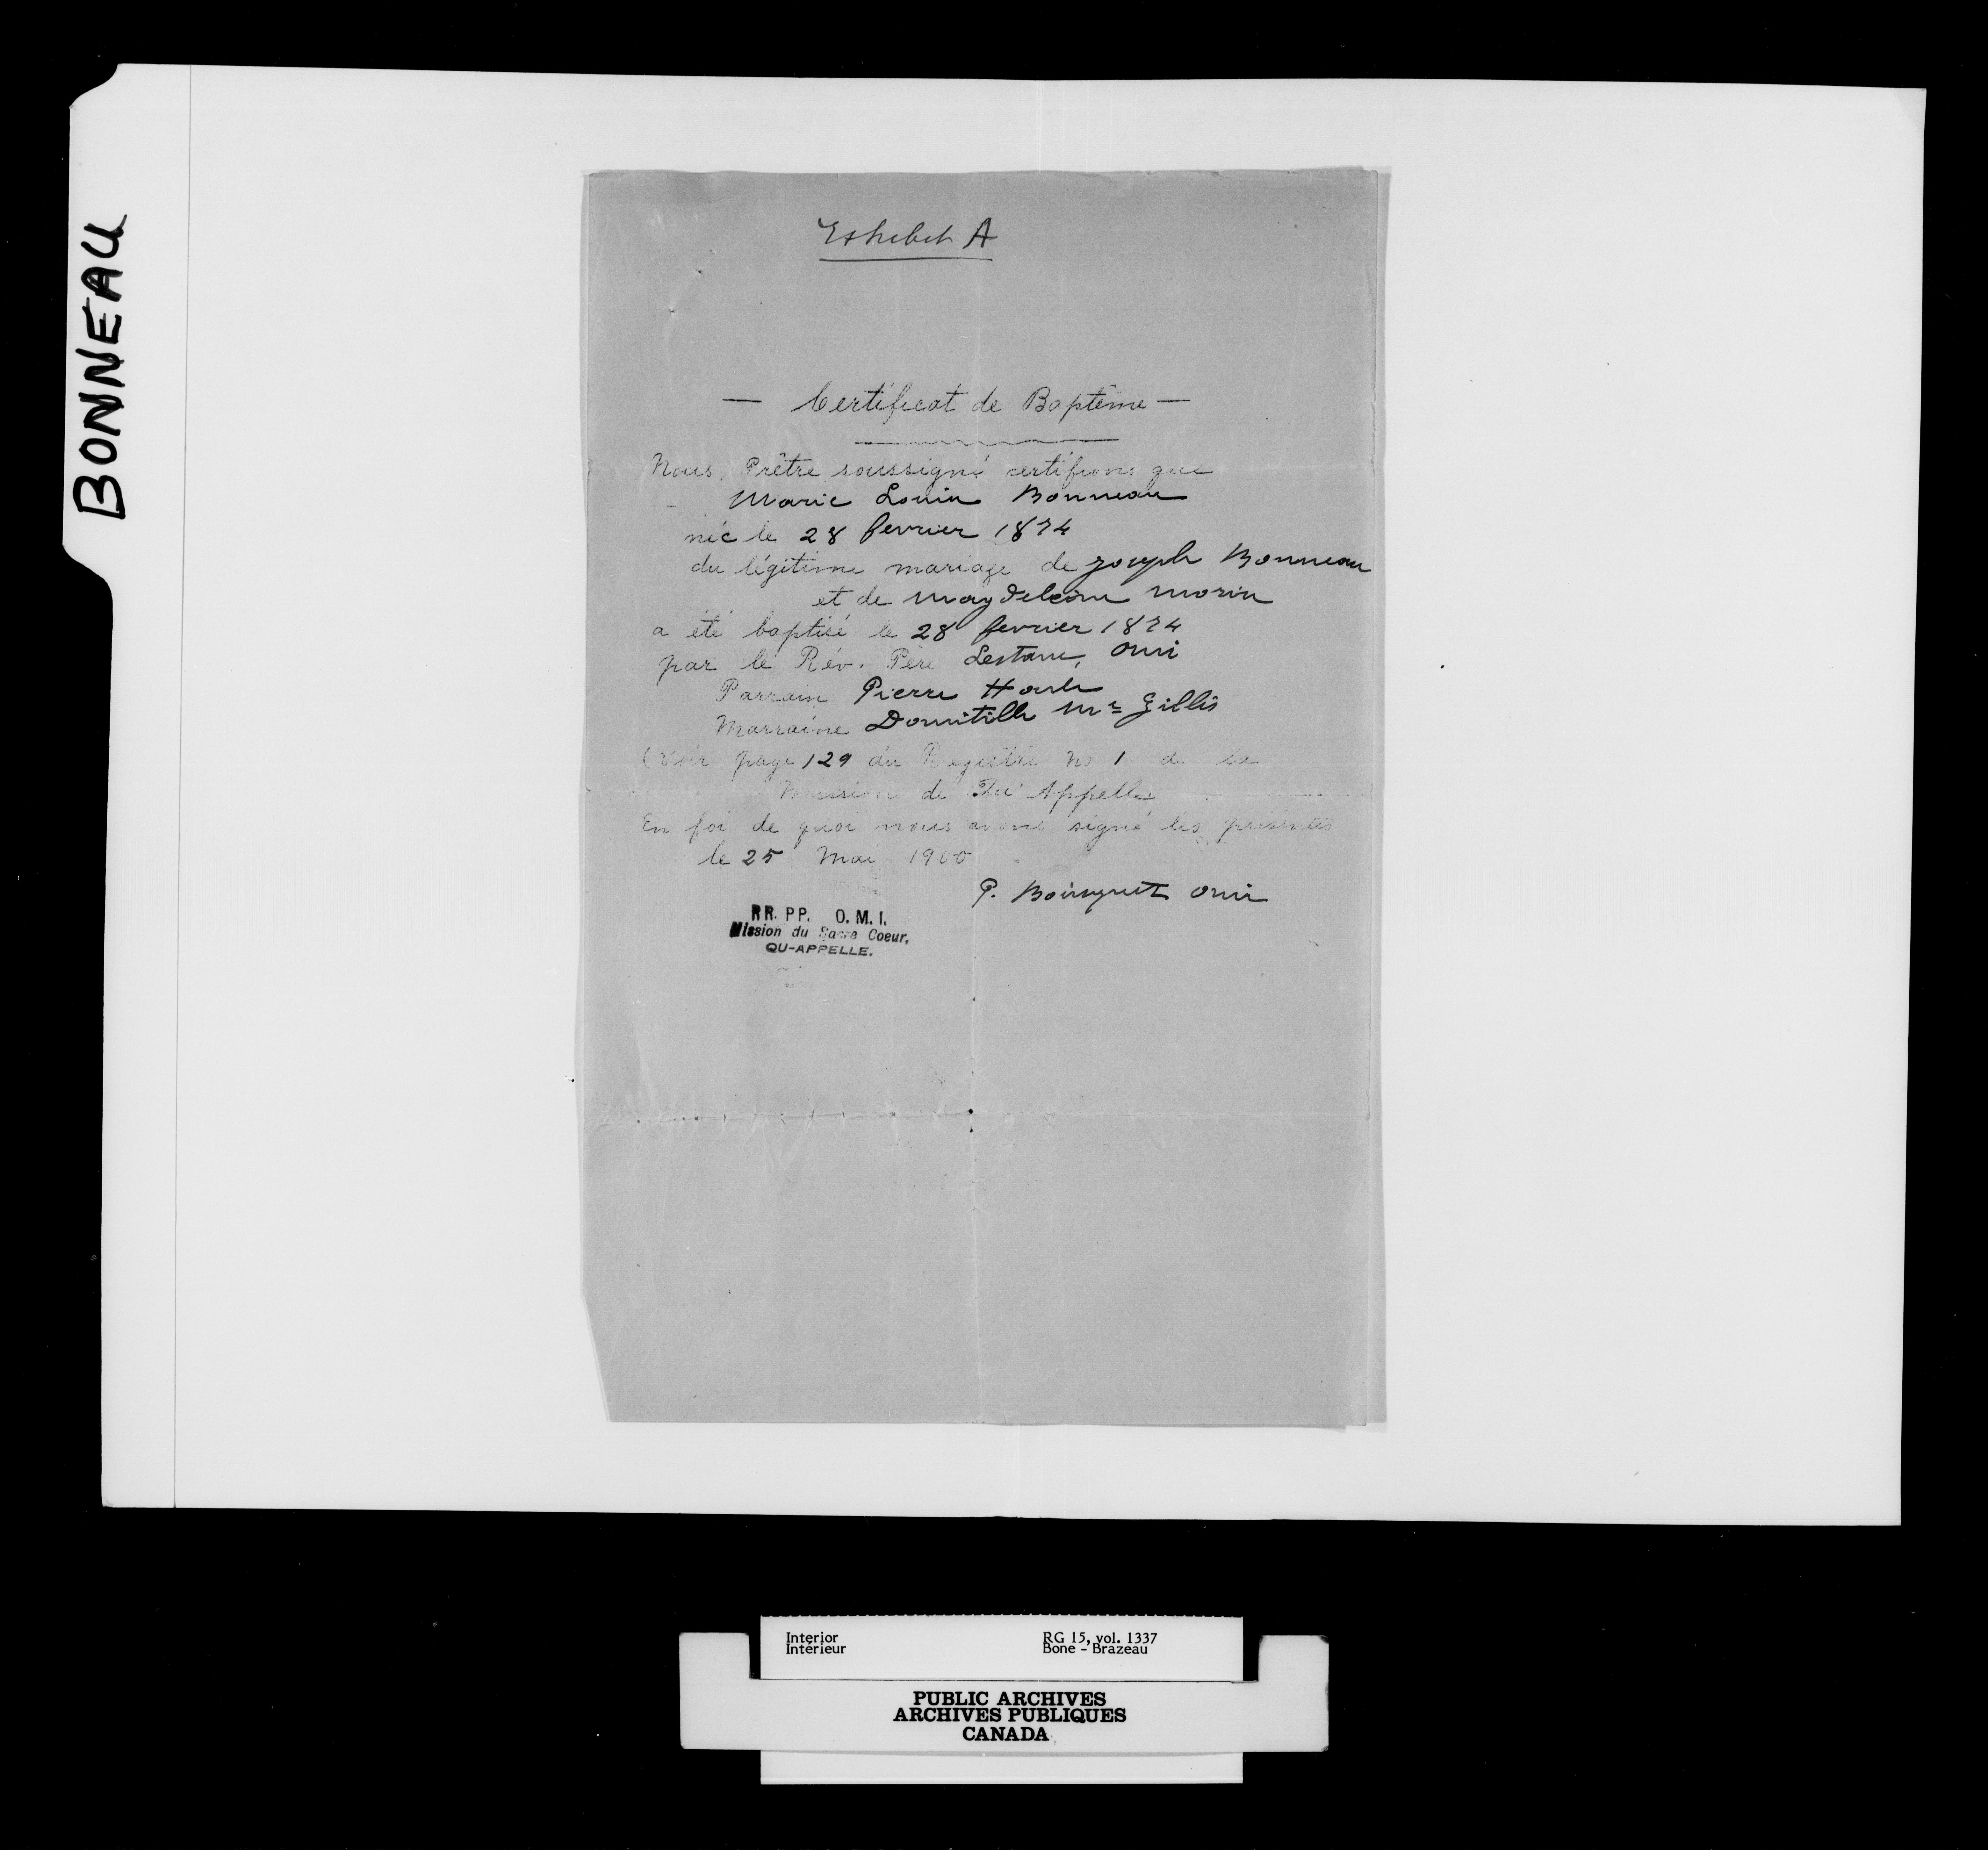 BONNEAU
Exhibit A
— Certificat de Baptême —
Nous, Prêtre soussigné certifions que
Marie Louise Bonneau
née le 28 fevrier 1874
du légitime mariage de Joseph Bonneau
et de Magdeleine Morin
a été baptisé le 28 fevrier 1874
par le Rév. Père Lestanc, omi
Parrain Pierre
Marraine Domitille Mc Gillis
(Voir page 129 du Registre No 1 de la
Mission de Qu'Appelle
En foi de quoi nous avons signé les présentes
le 25 Mai 1900
P. omi
RR. PP. O. M. I.
Mission du Sacre Coeur,
QU-APPELLE.
Interior
Intérieur
RG 15, vol. 1337
Bone - Brazeau
PUBLIC ARCHIVES
ARCHIVES PUBLIQUES
CANADA